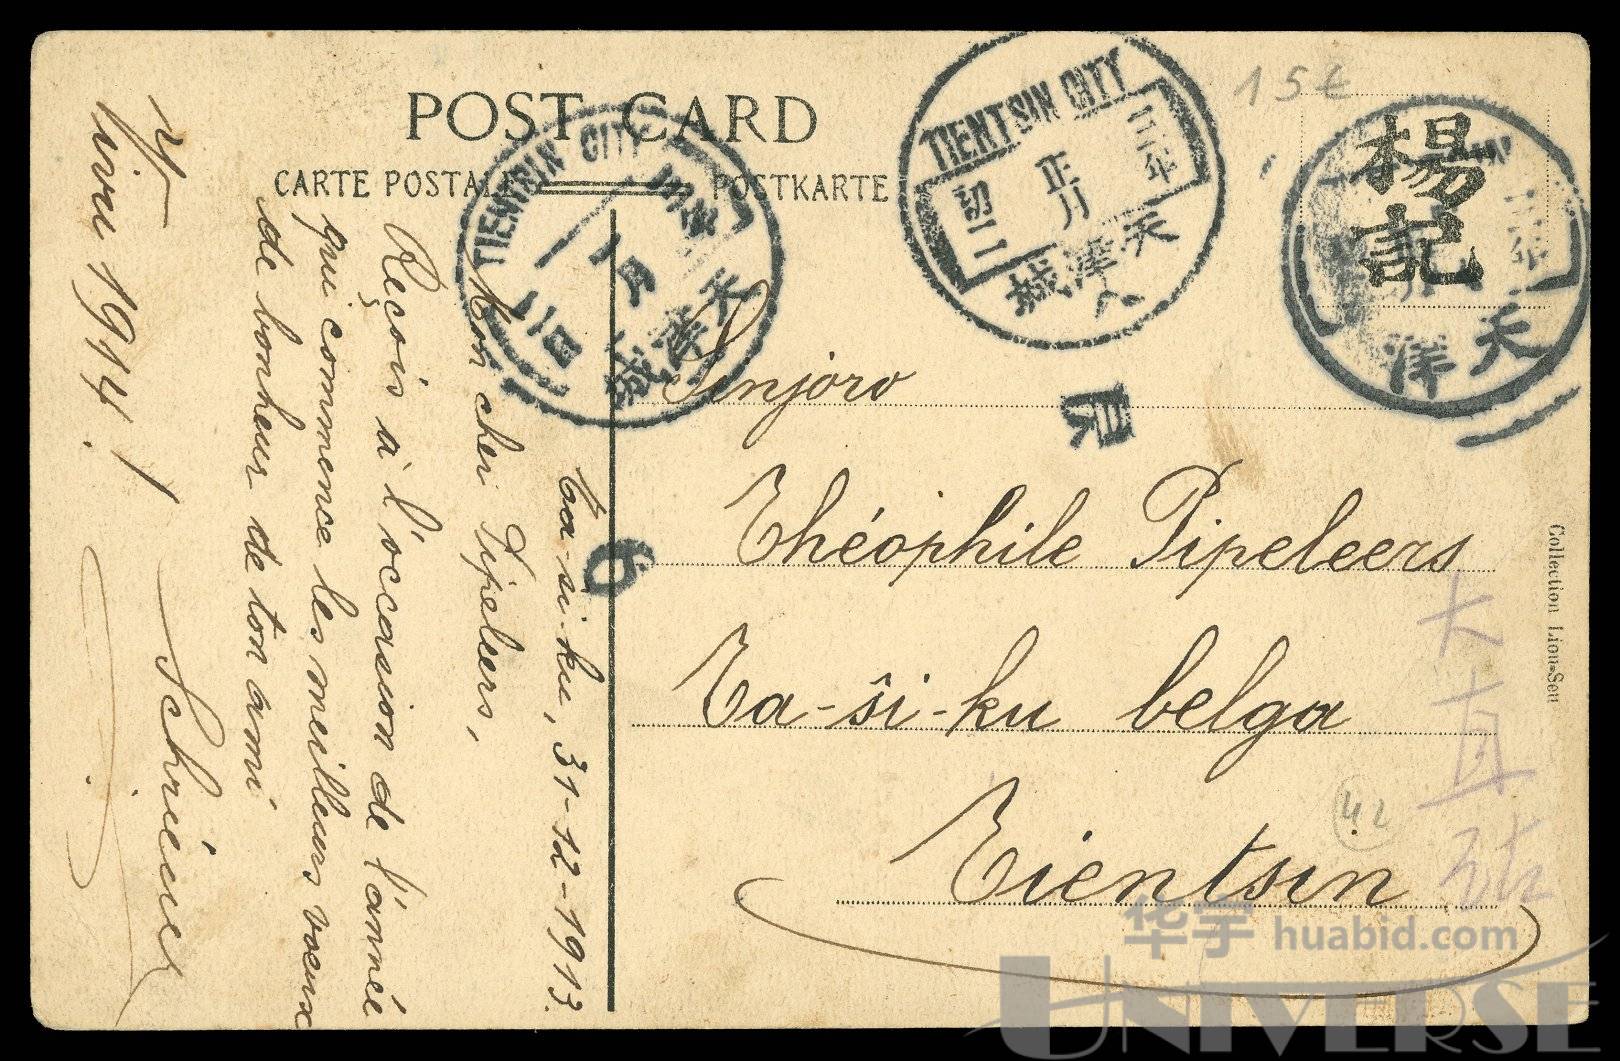 POST CARD
CARTE POSTALE
POSTKARTE
Ta-si-ku, 31-12-1913.
Mon cher Pipeleers,
Reçois à l'occasion de l'année
qui commence les meilleurs voeux
de bonheur de ton ami
Schriener
Vivu 1914!
Senjoro
Théophile Pipeleers
Ta-ŝi-ku belga
Tientsin
TIENTSIN CITY
一月
天津城
TIENTSIN CITY
三年
正月
初二
天津城
八
楊記
天津
辰
6
15€
42
大直沽
Collection Lion-Sen
华宇 huabid.com
UNIVERSE